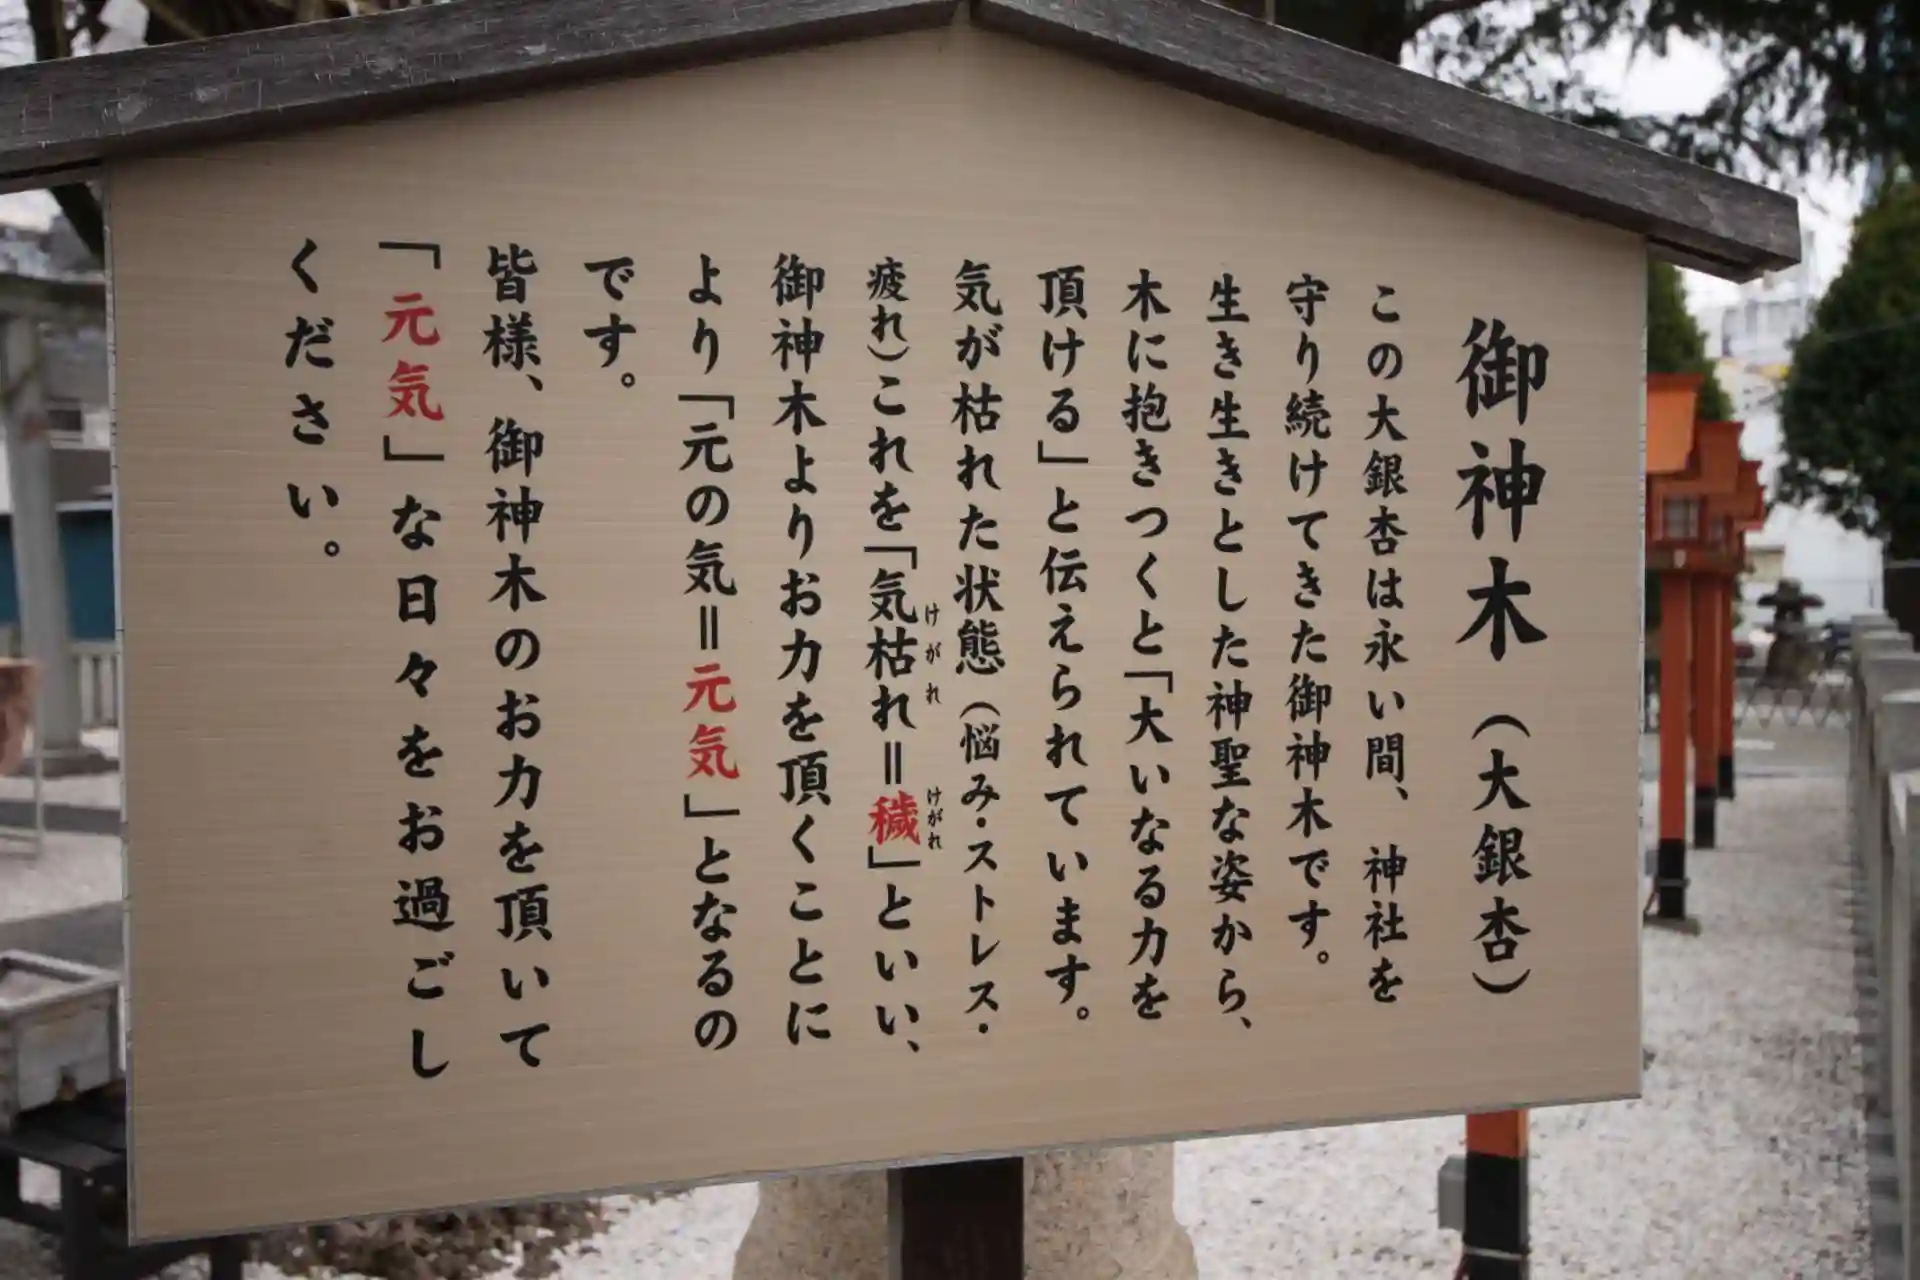 御神木（大銀杏）
この大銀杏は永い間、神社を
守り続けてきた御神木です。
生き生きとした神聖な姿から、
木に抱きつくと「大いなる力を
頂ける」と伝えられています。
気が枯れた状態（悩み・ストレス・
疲れ）これを「気枯れ＝穢」といい、
けがれ
けがれ
御神木よりお力を頂くことに
より「元の気＝元気」となるの
です。
皆様、御神木のお力を頂いて
「元気」な日々をお過ごし
ください。